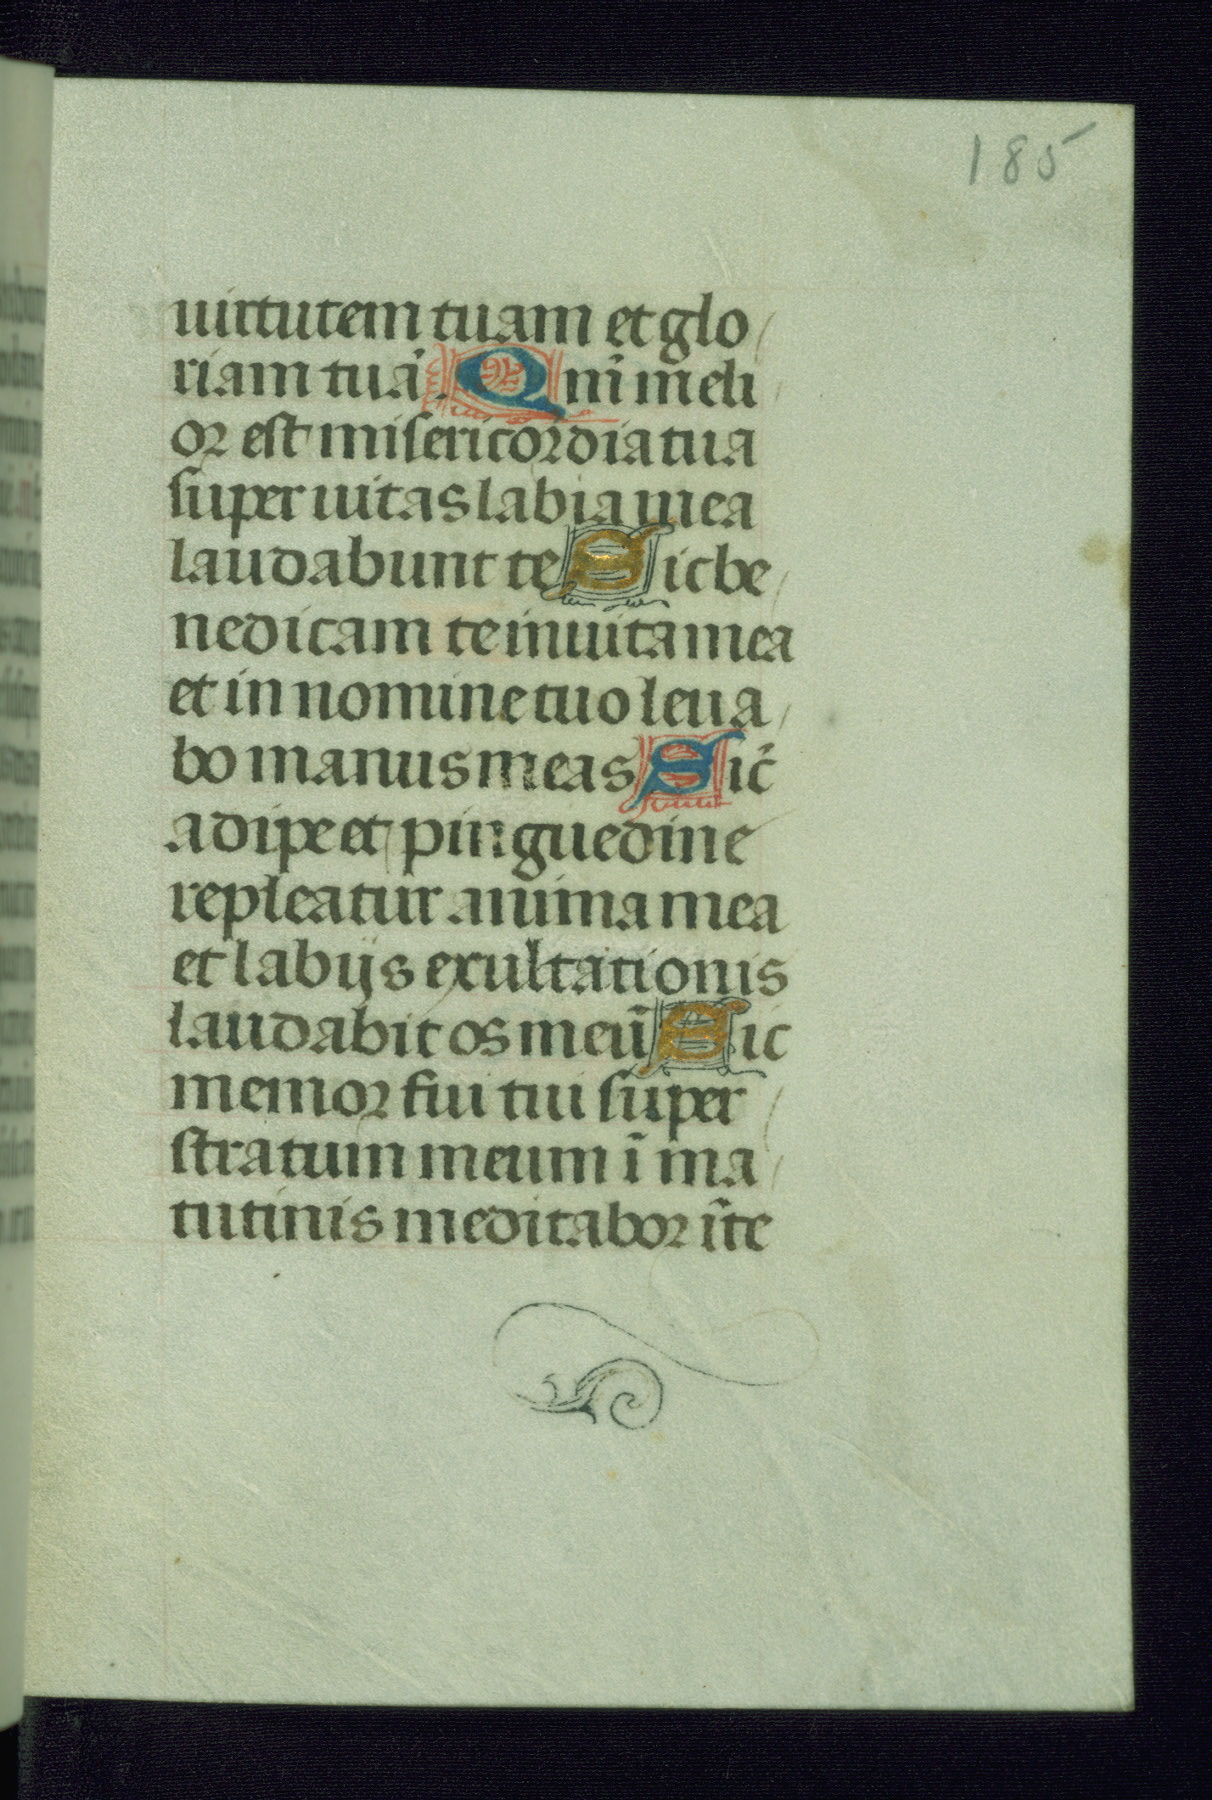 185
uirtutem tuam et glo
riam tuā. Qnm̄ meli
or est misericordia tua
super uitas labia mea
laudabunt te Sic be
nedicam te in uita mea
et in nomine tuo leua
bo manus meas Sic̄
adipe et pinguedine
repleatur anima mea
et labijs exultationis
laudabit os meū Sic
memor fui tui super
stratum meum ī ma
tutinis meditabor ī te